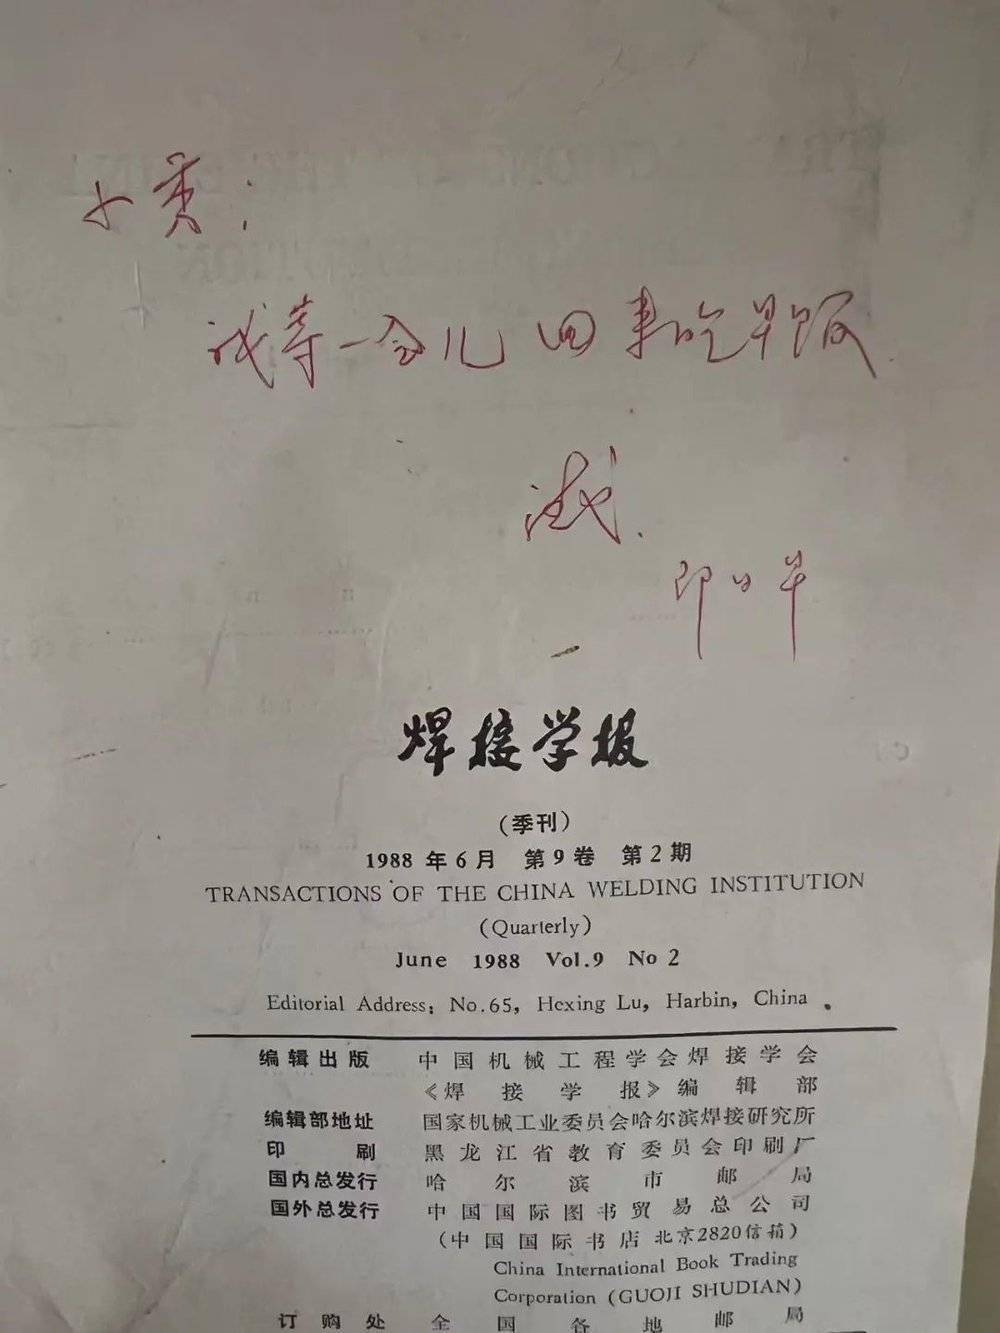 小黄：
我等一会儿回来吃早饭
即日早
焊接学报
(季刊)
1988年6月 第9卷 第2期
TRANSACTIONS OF THE CHINA WELDING INSTITUTION
(Quarterly)
June 1988 Vol.9 No 2
Editorial Address: No.65, Hexing Lu, Harbin, China.
编辑出版 中国机械工程学会焊接学会
《焊接学报》编辑部
编辑部地址 国家机械工业委员会哈尔滨焊接研究所
印刷 黑龙江省教育委员会印刷厂
国内总发行 哈尔滨市邮局
国外总发行 中国国际图书贸易总公司
(中国国际书店 北京2820信箱)
China International Book Trading
Corporation (GUOJI SHUDIAN)
订购处 全国各地邮局